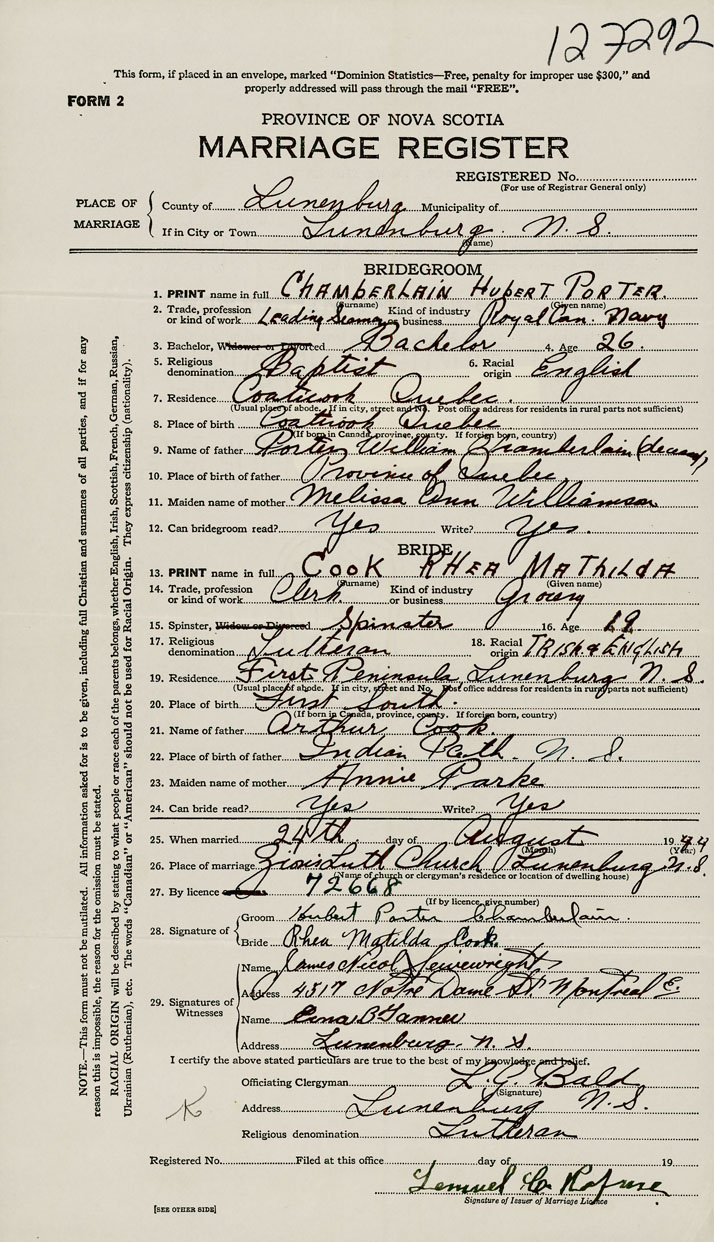 127292
This form, if placed in an envelope, marked "Dominion Statistics—Free, penalty for improper use $300," and
properly addressed will pass through the mail "FREE".
FORM 2
PROVINCE OF NOVA SCOTIA
MARRIAGE REGISTER
REGISTERED No.
(For use of Registrar General only)
PLACE OF MARRIAGE
County of Lunenburg Municipality of
If in City or Town Lunenburg N. S.
(Name)
BRIDEGROOM
1. PRINT name in full CHAMBERLAIN HUBERT PORTER.
(Surname) (Given name)
2. Trade, profession or kind of work Leading Seaman Kind of industry or business Royal Can. Navy
3. Bachelor, Widower or Divorced Bachelor 4. Age 26.
5. Religious denomination Baptist 6. Racial origin English
7. Residence Coaticook Quebec.
(Usual place of abode. If in city, street and No. Post office address for residents in rural parts not sufficient)
8. Place of birth Coaticook Quebec
(If born in Canada, province, county. If foreign born, country)
9. Name of father Porter William Chamberlain
10. Place of birth of father Province of Quebec
11. Maiden name of mother Melissa Ann Williamson
12. Can bridegroom read? Yes Write? Yes.
BRIDE
13. PRINT name in full COOK RHEA MATHILDA
(Surname) (Given name)
14. Trade, profession or kind of work Clerk Kind of industry or business Grocery
15. Spinster, Widow or Divorced Spinster 16. Age 19
17. Religious denomination Lutheran 18. Racial origin IRISH & ENGLISH
19. Residence First Peninsula, Lunenburg N. S.
(Usual place of abode. If in city, street and No. Post office address for residents in rural parts not sufficient)
20. Place of birth First South.
(If born in Canada, province, county. If foreign born, country)
21. Name of father Arthur Cook.
22. Place of birth of father Indian Path. N. S.
23. Maiden name of mother Annie Parke
24. Can bride read? Yes Write? Yes
25. When married 24th day of August 1944
(Month) (Year)
26. Place of marriage Zion's Luth Church Lunenburg. N. S.
(Name of church or clergyman's residence or location of dwelling house)
27. By licence 72668
(If by licence, give number)
28. Signature of
Groom Hubert Porter Chamberlain.
Bride Rhea Matilda Cook.
29. Signatures of Witnesses
Name James Nicol
Address 4317 Notre Dame St Montreal E.
Name B Tanner
Address Lunenburg. N. S.
I certify the above stated particulars are true to the best of my knowledge and belief.
Officiating Clergyman L. G. Bald
(Signature)
Address Lunenburg N. S.
Religious denomination Lutheran
K
Registered No. Filed at this office day of 19
Lemuel C. Rafuse
Signature of Issuer of Marriage Licence
[SEE OTHER SIDE]
NOTE.—This form must not be mutilated. All information asked for is to be given, including full Christian and surnames of all parties, and if for any
reason this is impossible, the reason for the omission must be stated.
RACIAL ORIGIN will be described by stating to what people or race each of the parents belongs, whether English, Irish, Scottish, French, German, Russian,
Ukrainian (Ruthenian), etc. The words "Canadian" or "American" should not be used for Racial Origin. They express citizenship (nationality).